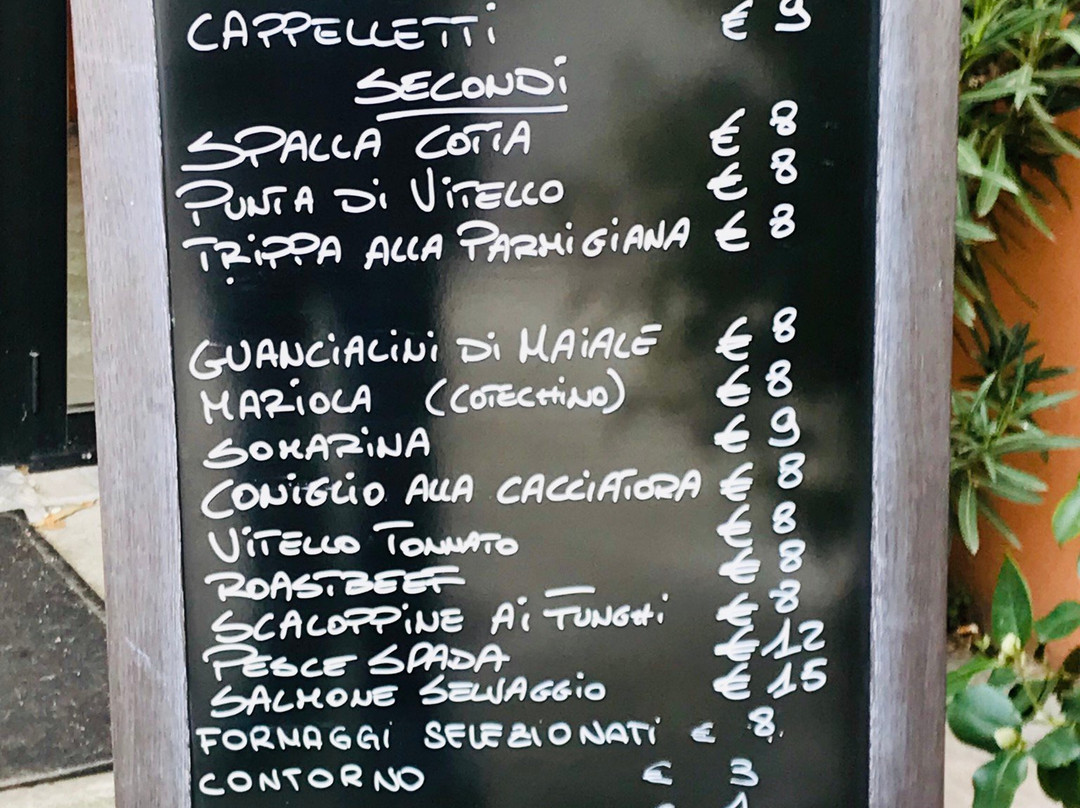 CAPPELLETTI € 9
SECONDI
SPALLA COTTA € 8
PUNTA DI VITELLO € 8
TRIPPA ALLA PARMIGIANA € 8
GUANCIALINI DI MAIALE € 8
MARIOLA (COTECHINO) € 8
SOMARINA € 9
CONIGLIO ALLA CACCIATORA € 8
VITELLO TONNATO € 8
ROASTBEEF € 8
SCALOPPINE AI FUNGHI € 8
PESCE SPADA € 12
SALMONE SELVAGGIO € 15
FORMAGGI SELEZIONATI € 8
CONTORNO € 3